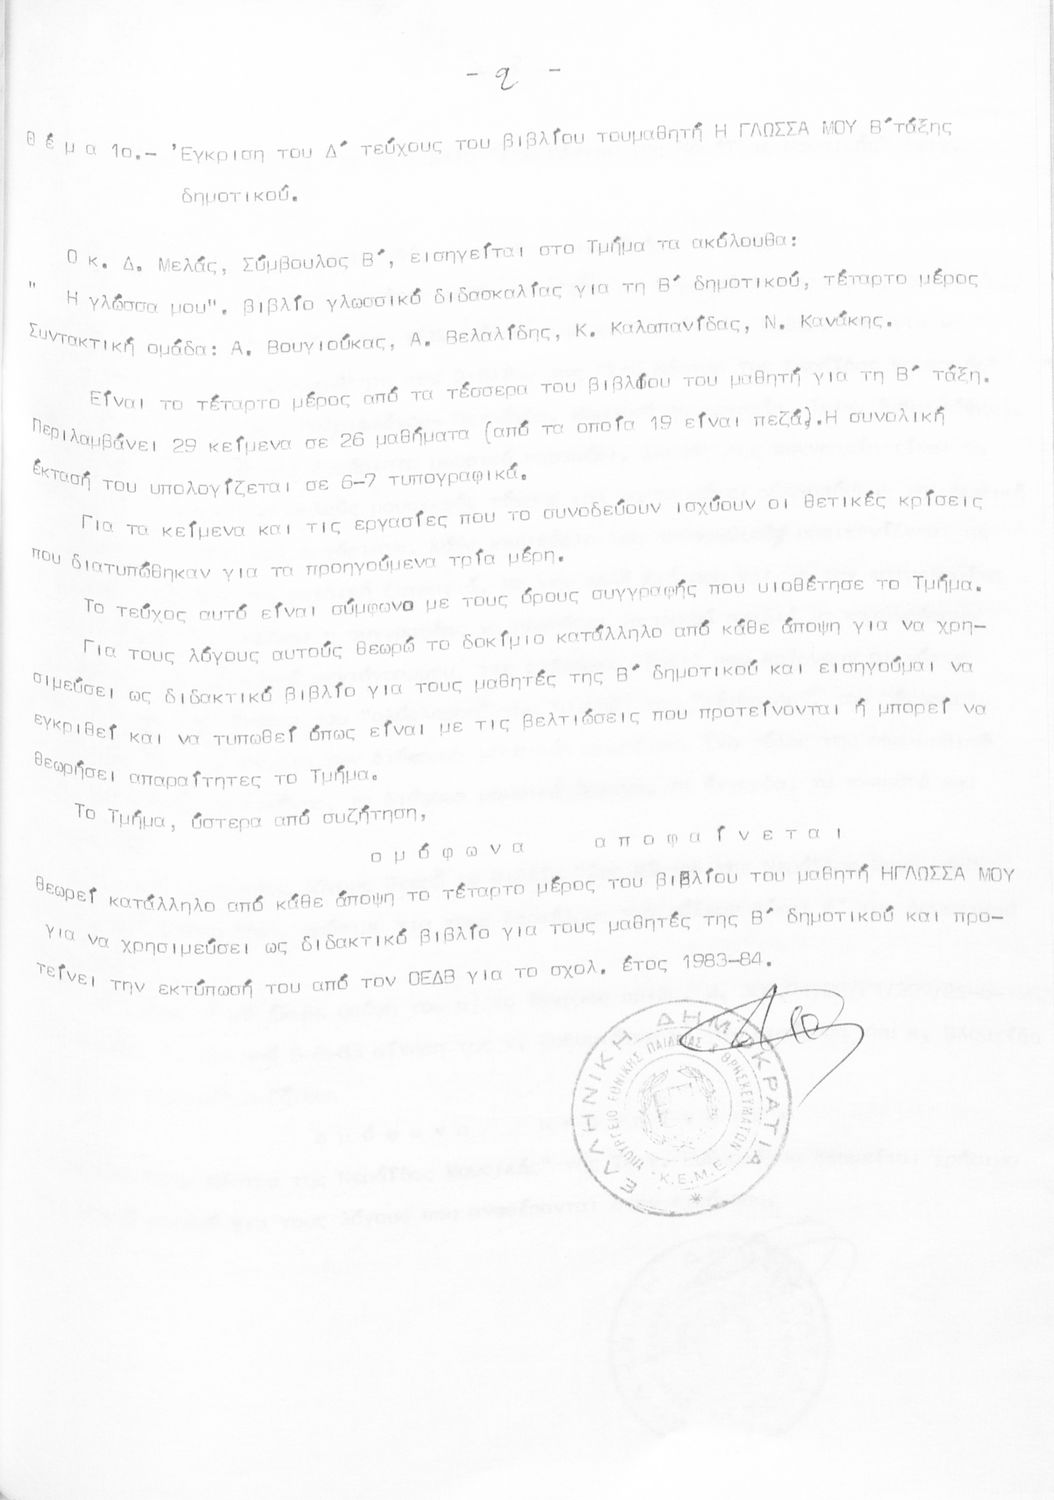 - 2 -
Θ έ μ α 1ο.- Έγκριση του Δ΄ τεύχους του βιβλίου τουμαθητή Η ΓΛΩΣΣΑ ΜΟΥ Β΄τάξης
δημοτικού.
Ο κ. Δ. Μελάς, Σύμβουλος Β΄, εισηγείται στο Τμήμα τα ακόλουθα:
" Η γλώσσα μου", βιβλίο γλωσσικό διδασκαλίας για τη Β΄ δημοτικού, τέταρτο μέρος
Συντακτική ομάδα: Α. Βουγιούκας, Α. Βελαλίδης, Κ. Καλαπανίδας, Ν. Κανάκης.
Είναι το τέταρτο μέρος από τα τέσσερα του βιβλίου του μαθητή για τη Β΄ τάξη.
Περιλαμβάνει 29 κείμενα σε 26 μαθήματα (από τα οποία 19 είναι πεζά).Η συνολική
έκτασή του υπολογίζεται σε 6-7 τυπογραφικά.
Για τα κείμενα και τις εργασίες που το συνοδεύουν ισχύουν οι θετικές κρίσεις
που διατυπώθηκαν για τα προηγούμενα τρία μέρη.
Το τεύχος αυτό είναι σύμφωνο με τους όρους συγγραφής που υιοθέτησε το Τμήμα.
Για τους λόγους αυτούς θεωρώ το δοκίμιο κατάλληλο από κάθε άποψη για να χρη-
σιμεύσει ως διδακτικό βιβλίο για τους μαθητές της Β΄ δημοτικού και εισηγούμαι να
εγκριθεί και να τυπωθεί όπως είναι με τις βελτιώσεις που προτείνονται ή μπορεί να
θεωρήσει απαραίτητες το Τμήμα.
Το Τμήμα, ύστερα από συζήτηση,
ο μ ό φ ω ν α   α π ο φ α ί ν ε τ α ι
θεωρεί κατάλληλο από κάθε άποψη το τέταρτο μέρος του βιβλίου του μαθητή ΗΓΛΩΣΣΑ ΜΟΥ
για να χρησιμεύσει ως διδακτικό βιβλίο για τους μαθητές της Β΄ δημοτικού και προ-
τείνει την εκτύπωσή του από τον ΟΕΔΒ για το σχολ. έτος 1983-84.
ΕΛΛΗΝΙΚΗ ΔΗΜΟΚΡΑΤΙΑ
ΥΠΟΥΡΓΕΙΟ ΕΘΝΙΚΗΣ ΠΑΙΔΕΙΑΣ & ΘΡΗΣΚΕΥΜΑΤΩΝ
Κ.Ε.Μ.Ε.